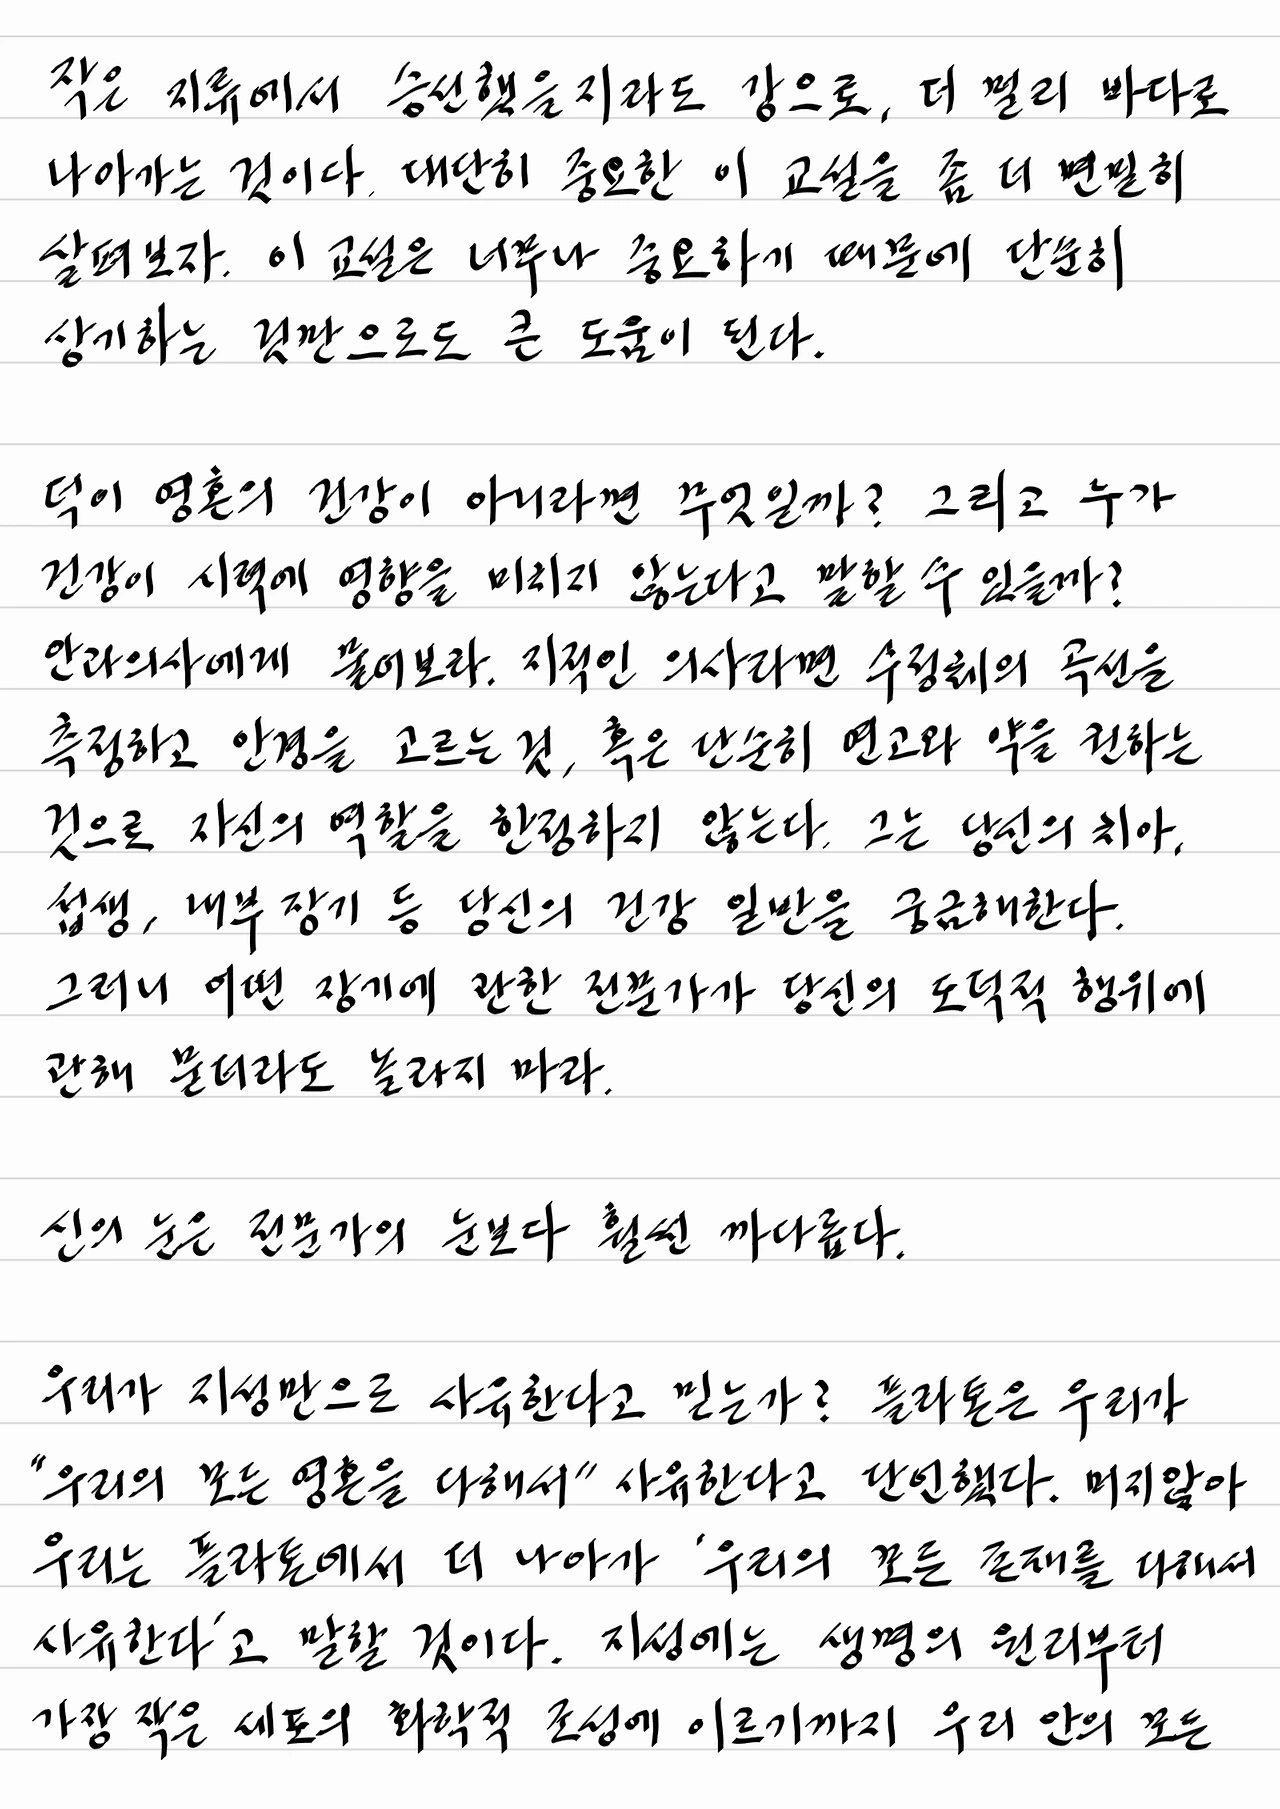 작은 지류에서 승선했을지라도 강으로, 더 멀리 바다로
나아가는 것이다. 대단히 중요한 이 교설을 좀 더 면밀히
살펴보자. 이 교설은 너무나 중요하기 때문에 단순히
상기하는 것만으로도 큰 도움이 된다.
덕이 영혼의 건강이 아니라면 무엇일까? 그리고 누가
건강이 시력에 영향을 미치지 않는다고 말할 수 있을까?
안과의사에게 물어보라. 지적인 의사라면 수정체의 곡선을
측정하고 안경을 고르는 것, 혹은 단순히 연고와 약을 권하는
것으로 자신의 역할을 한정하지 않는다. 그는 당신의 치아,
섭생, 내부 장기 등 당신의 건강 일반을 궁금해한다.
그러니 어떤 장기에 관한 전문가가 당신의 도덕적 행위에
관해 묻더라도 놀라지 마라.
신의 눈은 전문가의 눈보다 훨씬 까다롭다.
우리가 지성만으로 사유한다고 믿는가? 플라톤은 우리가
"우리의 모든 영혼을 다해서" 사유한다고 단언했다. 머지않아
우리는 플라톤에서 더 나아가 '우리의 모든 존재를 다해서
사유한다'고 말할 것이다. 지성에는 생명의 원리부터
가장 작은 세포의 화학적 조성에 이르기까지 우리 안의 모든